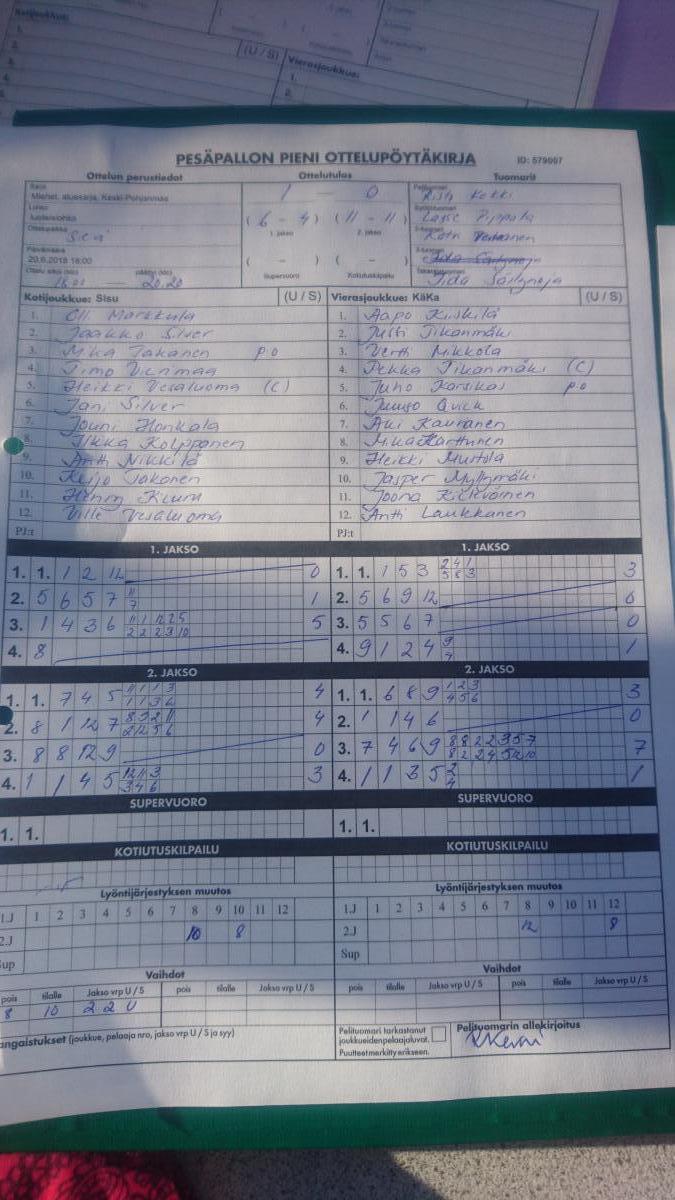 Kotijoukkue:
(U / S)
Vierasjoukkue:
PESÄPALLON PIENI OTTELUPÖYTÄKIRJA
ID: 579007
Ottelun perustiedot
Ottelutulos
Tuomarit
Miehet, aluesarja, Keski-Pohjanmaa
1 — 0
Risto
Lohko
( 6 - 4 ) ( 11 - 11 )
1. jakso
2. jakso
Ottelupaikka
Sievi
Päivämäärä
20.6.2018 18:00
( - ) ( - )
Supervuoro
Kotiutuskilpailu
18.01 — 20.20
Iida
Kotijoukkue: Sisu (U / S)
Vierasjoukkue: KaKa (U / S)
1. Olli Markkula
2. Jaakko Silver
3. Mika Jakonen p.o
4. Timo Vierimaa
5. Heikki Vesaluoma (C)
6. Jani Silver
7. Jouni Honkala
8. Ilkka Kolppanen
9. Antti Nikkilä
10. Reijo Jakonen
11. Henry
12. Ville Vesaluoma
PJ:t
1. Aapo Kiiskilä
2. Jussi Tikanmäki
3. Vertti Mikkola
4. Pekka Tikanmäki (C)
5. Juho Karsikas p.o
6. Juuso Qvick
7. Aki Kauranen
8. Mika Karttunen
9. Heikki Mustola
10. Jasper Myllymäki
11. Joona
12. Antti Laukkanen
PJ:t
1. JAKSO
1. 1. 1 2 12 0
2. 5 6 5 7 11 1
7
3. 1 4 3 6 11 1 12 2 5 5
2 2 2 3 10
4. 8
1. JAKSO
1. 1. 1 5 3 2 4 1 3
5 8 3
2. 5 6 9 12 0
3. 5 5 6 7 0
4. 9 1 2 4 9 1
7
2. JAKSO
1. 1. 7 4 5 11 1 1 3 4
1 1 3 6
2. 8 1 12 7 8 9 2 11 4
2 12 5 6
3. 8 8 12 9 0
4. 1 1 4 5 12 11 3 3
3 4 6
2. JAKSO
1. 1. 6 8 9 1 2 3 3
4 5 6
2. 1 1 4 6 0
3. 7 4 6 9 8 8 2 2 3 5 7 7
8 2 2 4 5 12 10
4. 1 1 3 5 2 1
4
SUPERVUORO
1. 1.
SUPERVUORO
1. 1.
KOTIUTUSKILPAILU
KOTIUTUSKILPAILU
Lyöntijärjestyksen muutos
1.J 1 2 3 4 5 6 7 8 9 10 11 12
2.J 10 8
Sup
Lyöntijärjestyksen muutos
1.J 1 2 3 4 5 6 7 8 9 10 11 12
2.J 12 8
Sup
Vaihdot
pois tilalle Jakso vrp U / S pois tilalle Jakso vrp U / S
8 10 2 2 U
Vaihdot
pois tilalle Jakso vrp U / S pois tilalle Jakso vrp U / S
angaistukset (joukkue, pelaaja nro, jakso vrp U / S ja syy)
Pelituomari tarkastanut
joukkueidenpelaajaluvat.
Puutteet merkitty erikseen.
Pelituomarin allekirjoitus